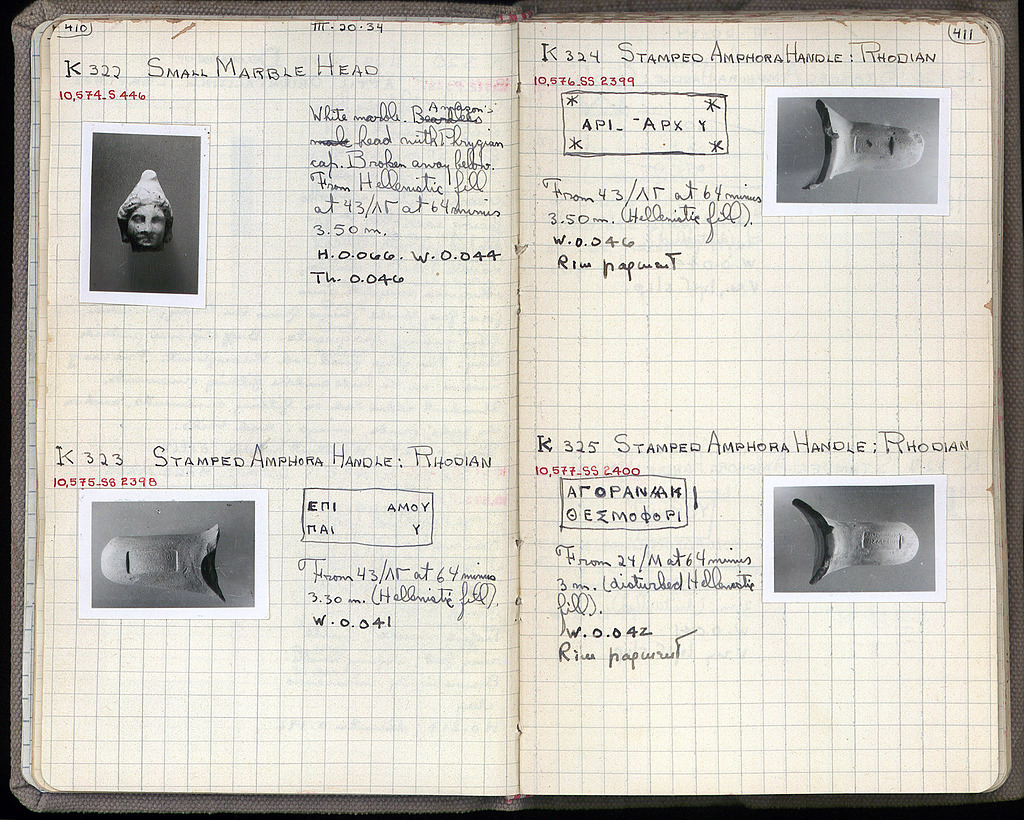 410
III-20-34
K 322 SMALL MARBLE HEAD
10,574-S 446
Amazon's
White marble. Beardless
male head with Phrygian
cap. Broken away below.
From Hellenistic fill
at 43/ΛΓ at 64 minus
3.50 m.
H. 0.066. W. 0.044
Th. 0.046
K 323 STAMPED AMPHORA HANDLE: RHODIAN
10,575-SS 2398
ΕΠΙ ΑΜΟΥ
ΠΑΙ Υ
From 43/ΛΓ at 64 minus
3.30 m. (Hellenistic fill).
W. 0.041
411
K 324 STAMPED AMPHORA HANDLE: RHODIAN
10,576-SS 2399
* *
ΑΡΙ ΑΡΧ Υ
* *
From 43/ΛΓ at 64 minus
3.50 m. (Hellenistic fill).
W. 0.046
Rim fragment
K 325 STAMPED AMPHORA HANDLE: RHODIAN
10,577-SS 2400
ΑΓΟΡΑΝΑΚ
ΘΕΣΜΟΦΟΡΙ
From 24/Μ at 64 minus
3 m. (disturbed Hellenistic
fill).
W. 0.042
Rim fragment